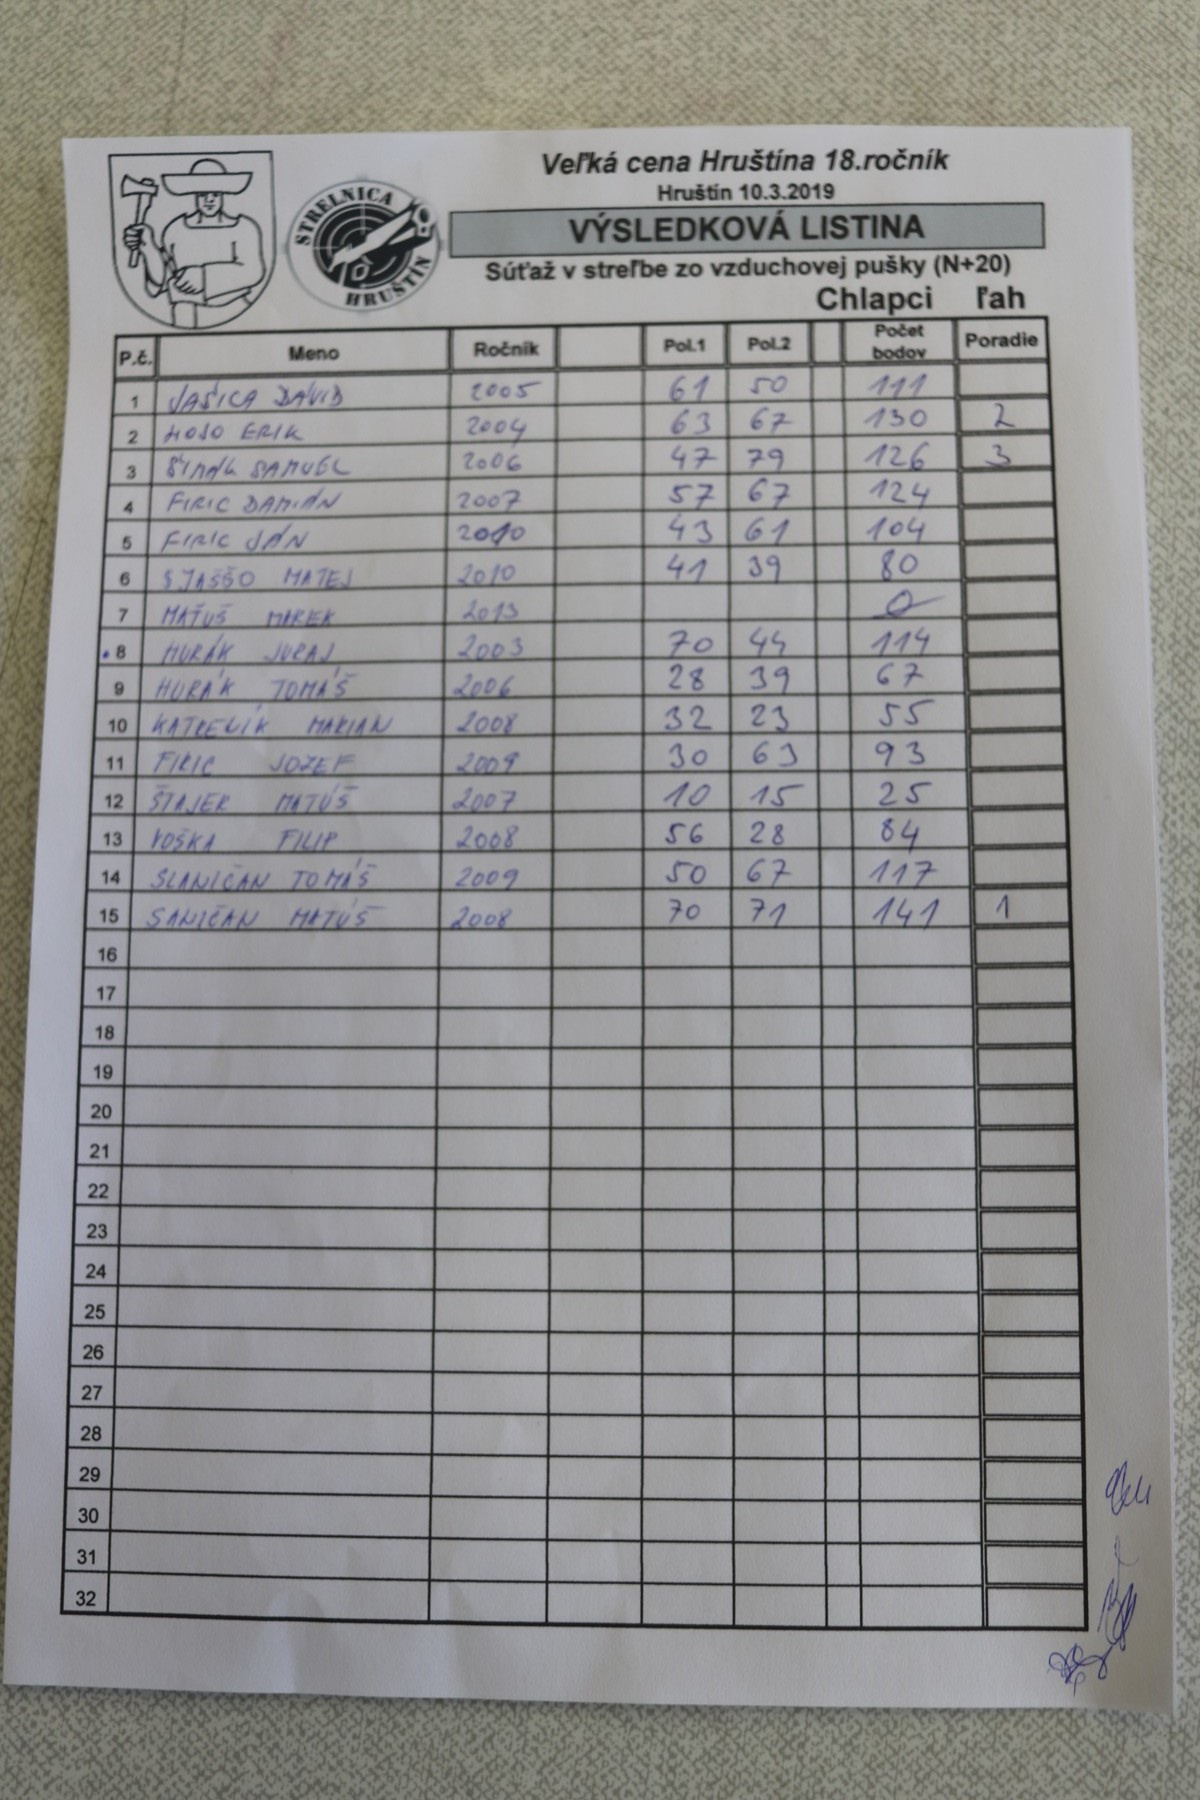 STRELNICA
HRUŠTÍN
Veľká cena Hruštína 18.ročník
Hruštín 10.3.2019
VÝSLEDKOVÁ LISTINA
Súťaž v streľbe zo vzduchovej pušky (N+20)
Chlapci ľah
P.č. Meno Ročník Pol.1 Pol.2 Počet bodov Poradie
1 JAŠICA DÁVID 2005 61 50 111
2 HOJO ERIK 2004 63 67 130 2
3 SAMUEL 2006 47 79 126 3
4 FIRIC DAMIÁN 2007 57 67 124
5 FIRIC JÁN 2010 43 61 104
6 MATEJ 2010 41 39 80
7 MAŤUŠ MAREK 2013 0
8 HURÁK JURAJ 2003 70 44 114
9 HURÁK TOMÁŠ 2006 28 39 67
10 KATRENÍK MARIAN 2008 32 23 55
11 FIRIC JOZEF 2009 30 63 93
12 ŠTAJER MATÚŠ 2007 10 15 25
13 VOŠKA FILIP 2008 56 28 84
14 SLANIČAN TOMÁŠ 2009 50 67 117
15 SANIČAN MATÚŠ 2008 70 71 141 1
16
17
18
19
20
21
22
23
24
25
26
27
28
29
30
31
32